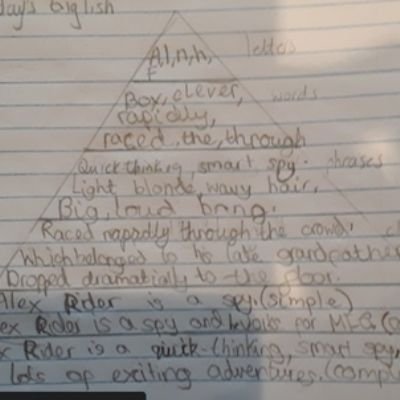 day's English
Al, n, h, letters
F
Box, clever, words
rapidly,
raced, the, through
Quick thinking, smart spy. phrases
Light blonde, wavy hair.
Big, loud bang.
Raced rapadly through the crowd.
Which belonged to his late grandfather
Dropped dramatically to the floor.
Alex Rider is a spy. (simple)
ex Rider is a spy and works for MI6. (
x Rider is a quick-thinking, smart spy,
lots of exciting adventures. (compl